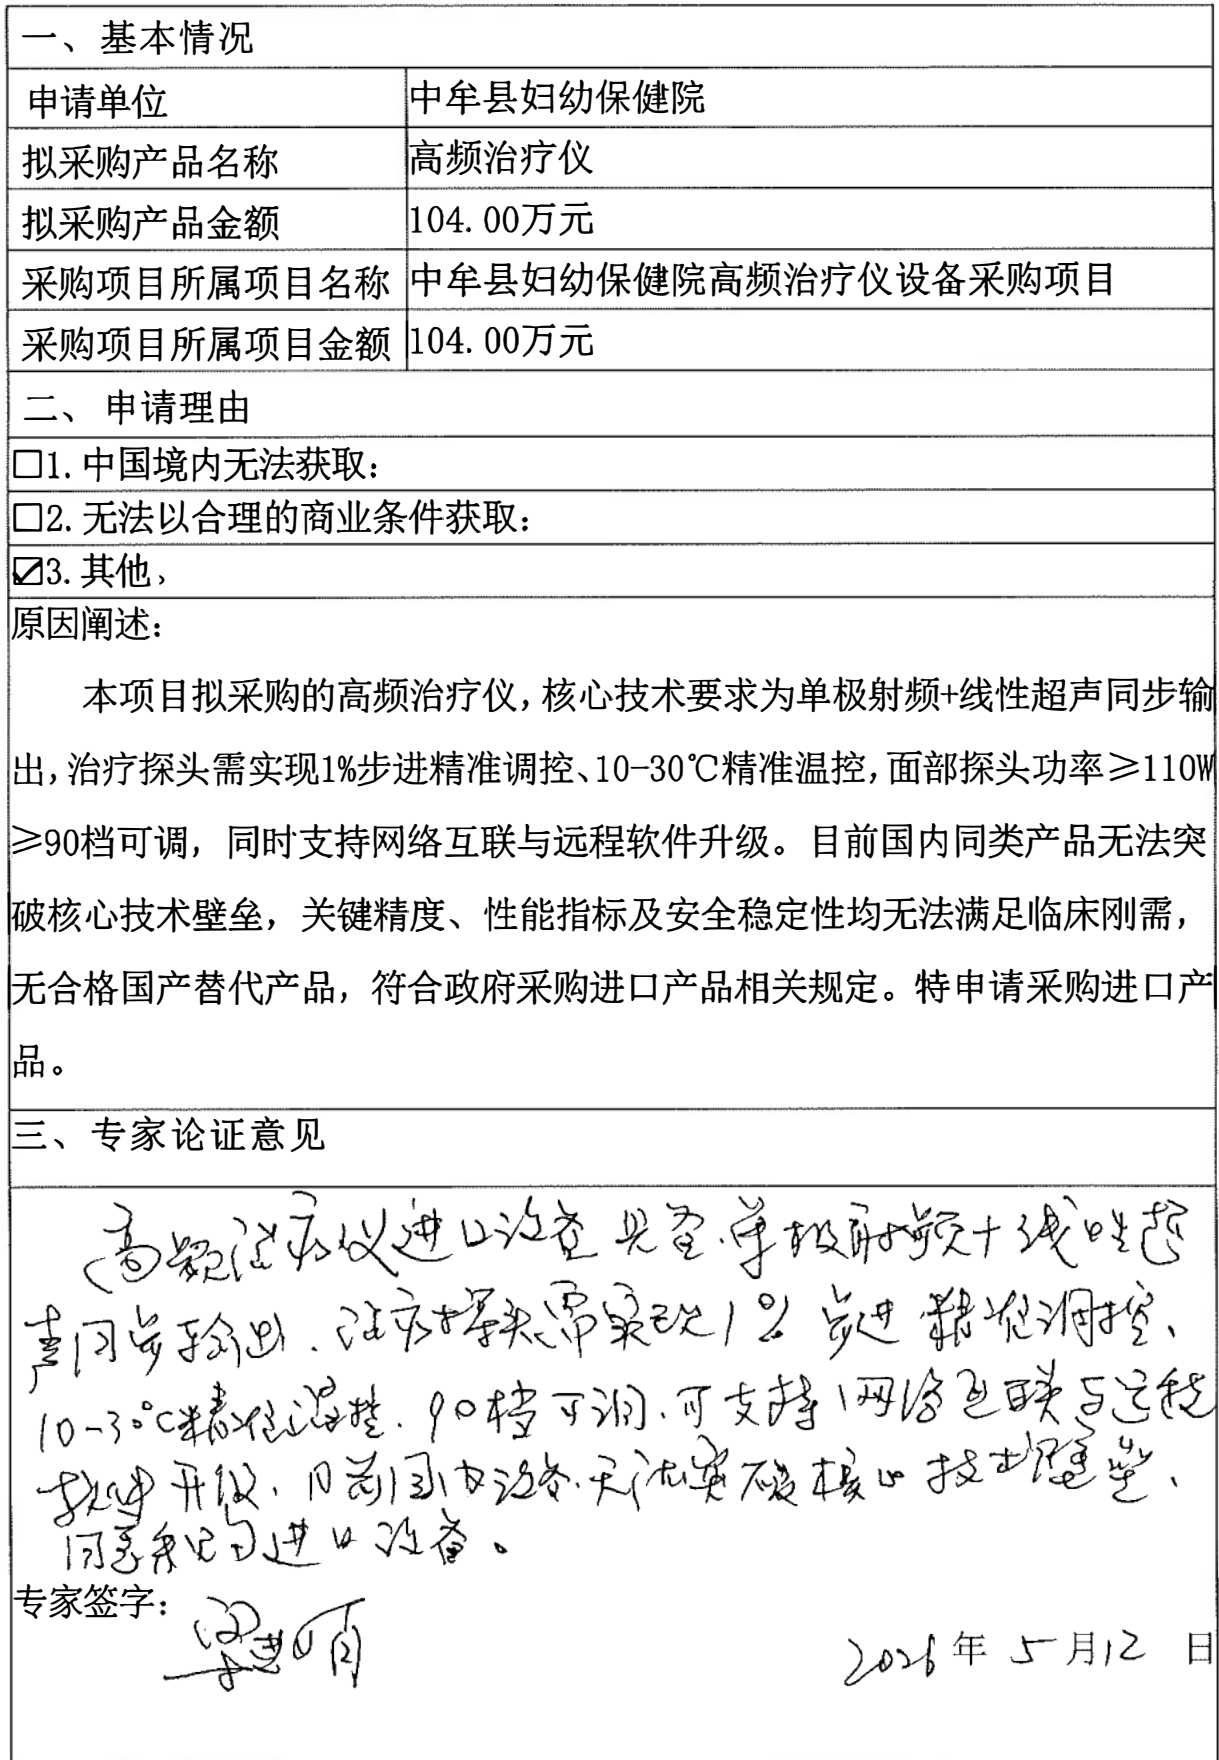 一、基本情况
申请单位 中牟县妇幼保健院
拟采购产品名称 高频治疗仪
拟采购产品金额 104.00万元
采购项目所属项目名称 中牟县妇幼保健院高频治疗仪设备采购项目
采购项目所属项目金额 104.00万元
二、申请理由
□1.中国境内无法获取：
□2.无法以合理的商业条件获取：
☑3.其他，
原因阐述：
本项目拟采购的高频治疗仪，核心技术要求为单极射频+线性超声同步输
出，治疗探头需实现1%步进精准调控、10-30℃精准温控，面部探头功率≥110W
≥90档可调，同时支持网络互联与远程软件升级。目前国内同类产品无法突
破核心技术壁垒，关键精度、性能指标及安全稳定性均无法满足临床刚需，
无合格国产替代产品，符合政府采购进口产品相关规定。特申请采购进口产
品。
三、专家论证意见
高频治疗仪进口设备具备.单极射频+线性超
声同步输出、治疗探头需实现1%步进精准调控、
10-30℃精准温控、90档可调、可支持网络互联与远程
软件升级、目前国内设备无法突破核心技术壁垒、
同意采购进口设备。
专家签字：
2026年5月12日